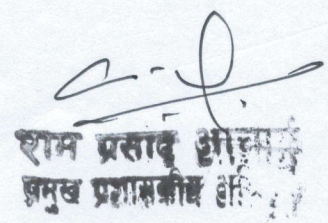 राम प्रसाद आचार्य
प्रमुख प्रशासकीय